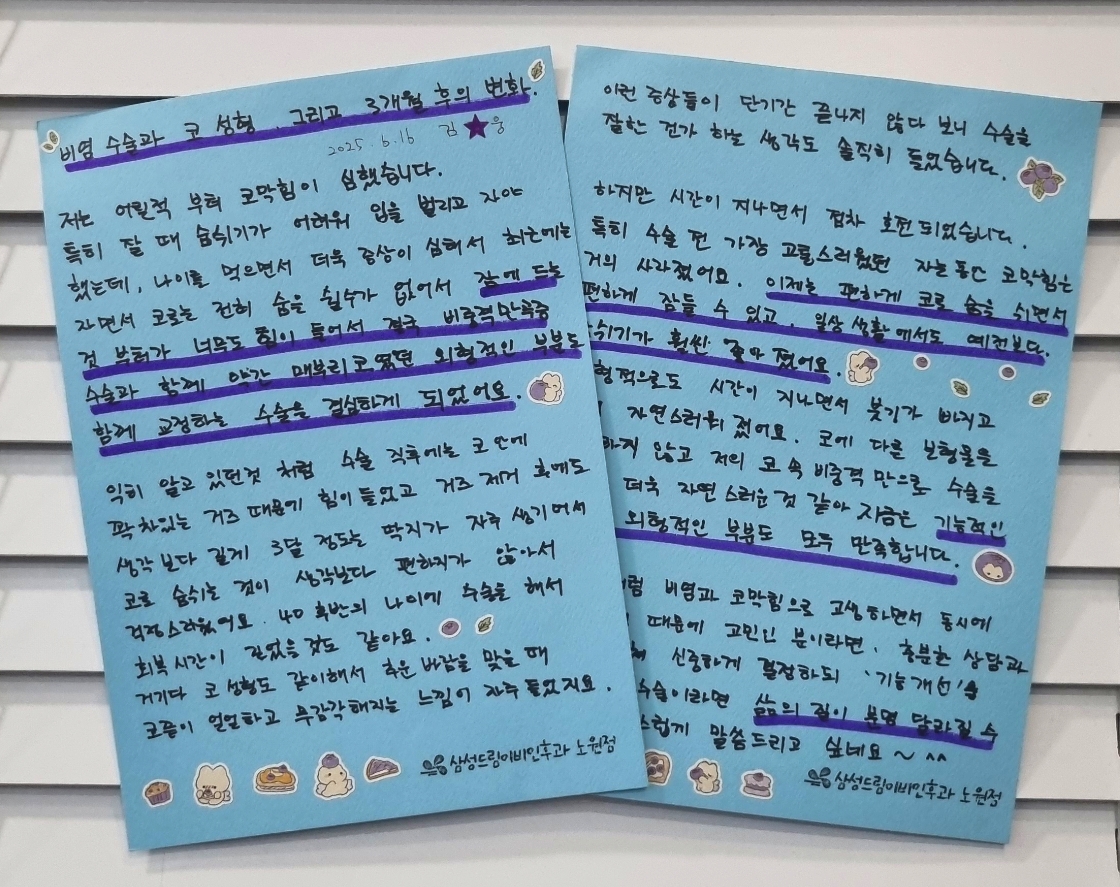 비염 수술과 코 성형, 그리고 3개월 후의 변화.
2025. 6. 16 김★웅
저는 어릴적 부터 코막힘이 심했습니다.
특히 잘 때 숨쉬기가 어려워 입을 벌리고 자야
했는데, 나이를 먹으면서 더욱 증상이 심해서 최근에는
자면서 코로는 전혀 숨을 쉴수가 없어서 잠에 드는
것 부터가 너무도 힘이 들어서 결국 비중격만곡증
수술과 함께 약간 매부리코였던 외형적인 부분도
함께 교정하는 수술을 결심하게 되었어요.
익히 알고 있던것 처럼 수술 직후에는 코 안에
꽉 차있는 거즈 때문에 힘이 들었고 거즈 제거 후에도
생각보다 길게 3달 정도는 딱지가 자주 생기어서
코로 숨쉬는 것이 생각보다 편하지가 않아서
걱정스러웠어요. 40 후반의 나이에 수술을 해서
회복시간이 길었을 것도 같아요.
거기다 코 성형도 같이해서 추운 바람을 맞을 때
코끝이 얼얼하고 무감각해지는 느낌이 자주 들었지요.
삼성드림이비인후과 노원점
이런 증상들이 단기간 끝나지 않다 보니 수술을
잘한 건가 하는 생각도 솔직히 들었습니다.
하지만 시간이 지나면서 점차 호전되었습니다.
특히 수술 전 가장 고통스러웠던 자는동안 코막힘은
거의 사라졌어요. 이제는 편하게 코로 숨을 쉬면서
편하게 잠들 수 있고, 일상생활에서도 예전보다.
쉬기가 훨씬 좋아졌어요.
형적으로도 시간이 지나면서 붓기가 빠지고
자연스러워 졌어요. 코에 다른 보형물을
하지 않고 저의 코 속 비중격 만으로 수술을
더욱 자연스러운것 같아 지금은 기능적인
외형적인 부분도 모두 만족합니다.
럼 비염과 코막힘으로 고생하면서 동시에
때문에 고민인 분이라면, 충분한 상담과
신중하게 결정하되 '기능개선'을
수술이라면 삶의 질이 분명 달라질 수
스럽게 말씀드리고 싶네요~ ^^
삼성드림이비인후과 노원점